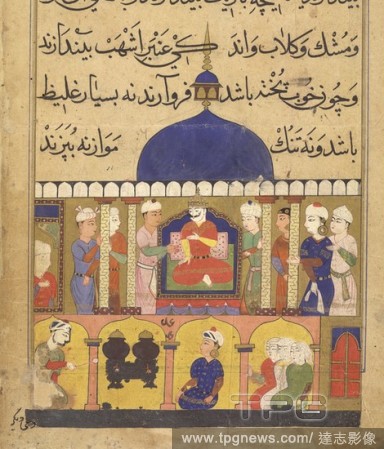 ومشک وکلاب واند کی عنبر اشهب بیندازند
وچون خوب پخته باشد فروآرند نه بسیار غلیظ
باشد ونه تنک موازنه بپزند
TPG
www.tpgnews.com/ 達志影像